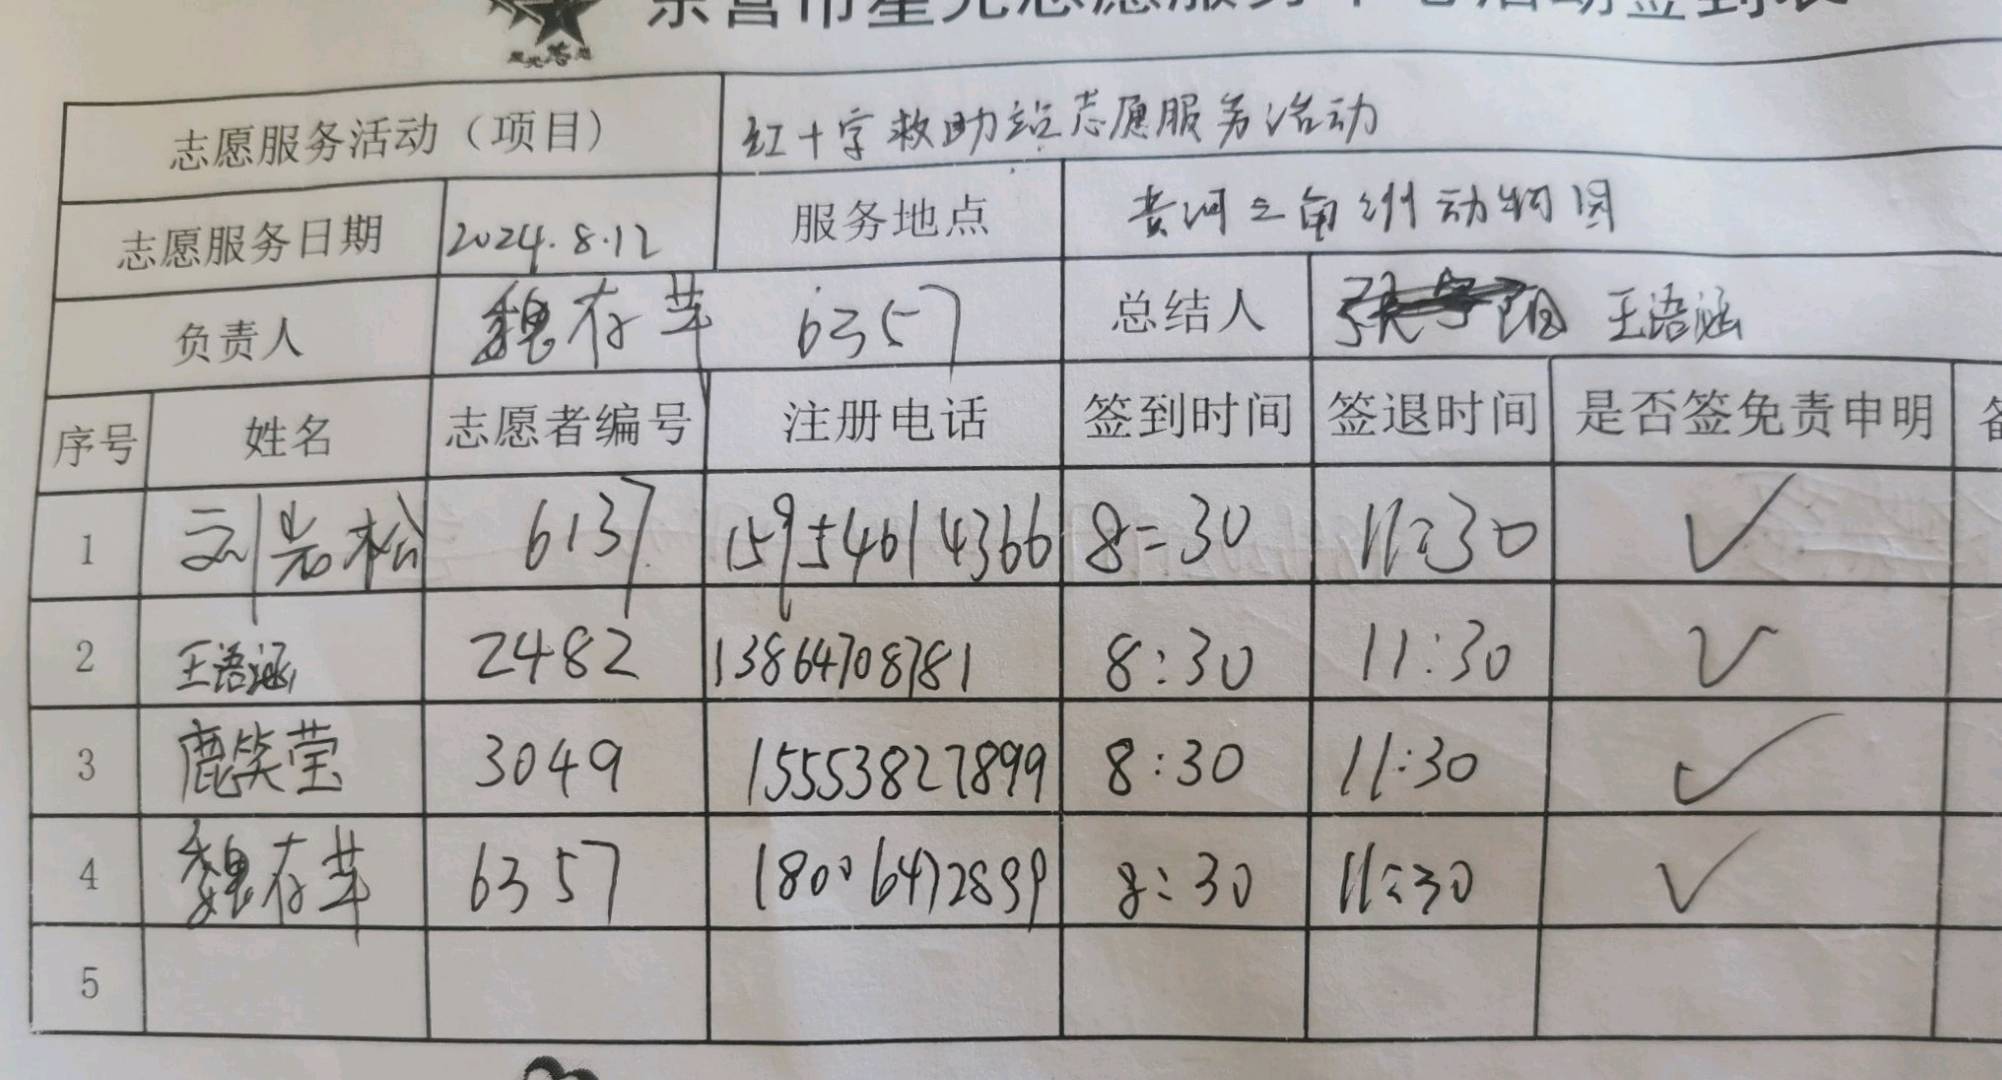 东营市星光志愿服务中心活动签到表
星光志愿
志愿服务活动（项目） 红十字救助站志愿服务活动
志愿服务日期 2024.8.12 服务地点 黄河三角洲动物园
负责人 魏存苹 6357 总结人 王语涵
序号 姓名 志愿者编号 注册电话 签到时间 签退时间 是否签免责申明
1 刘岩松 6137 15954614366 8:30 11:30 ✓
2 王语涵 2482 13864708781 8:30 11:30 ✓
3 鹿笑莹 3049 15553827899 8:30 11:30 ✓
4 魏存苹 6357 18006472899 8:30 11:30 ✓
5